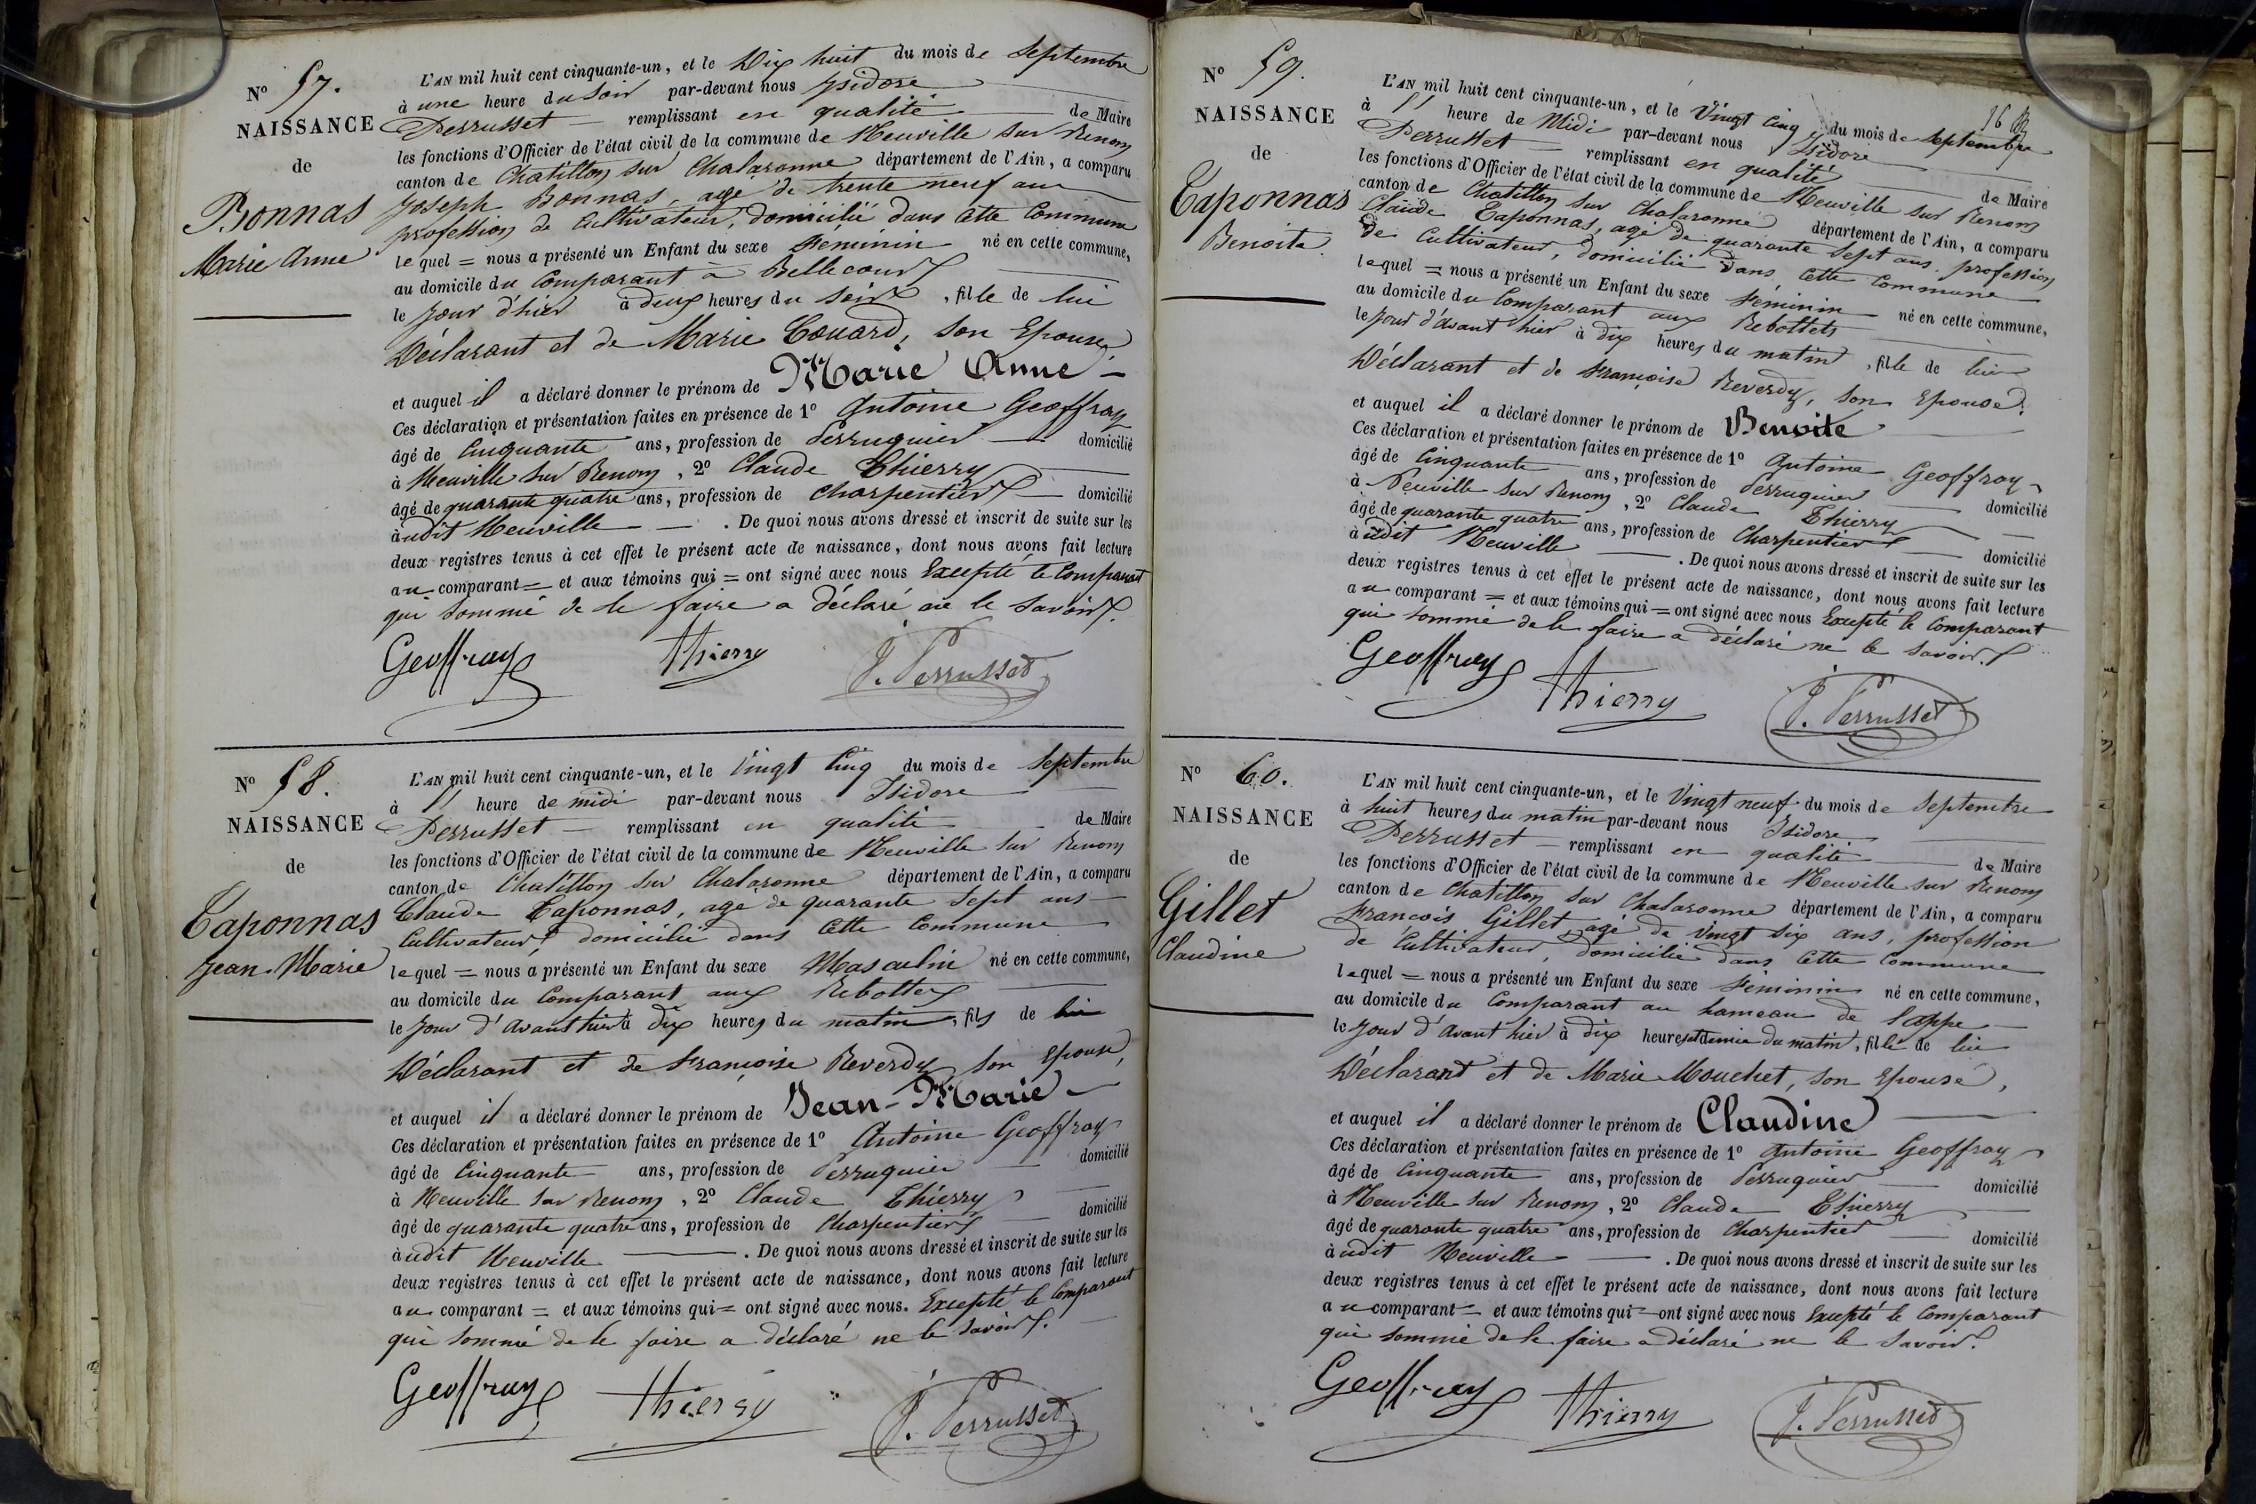 N° 57.
NAISSANCE
de
Bonnas
Marie Anne
L'AN mil huit cent cinquante-un, et le Dix huit du mois de Septembre
à une heure du Soir par-devant nous Isidore
Perrusset remplissant en qualité de Maire
les fonctions d'Officier de l'état civil de la commune de Neuville sur Renom
canton de Chatillon sur Chalaronne département de l'Ain, a comparu
Joseph Bonnas, agé de trente neuf ans
profession de Cultivateur, domicilié dans cette Commune
lequel = nous a présenté un Enfant du sexe Féminin né en cette commune,
au domicile du Comparant a Bellecour
le jour d'hier à deux heures du Soir, fille de lui
Déclarant et de Marie Couard, son Epouse,
et auquel il a déclaré donner le prénom de Marie Anne
Ces déclaration et présentation faites en présence de 1° Antoine Geoffray
âgé de Cinquante ans, profession de Perruquier domicilié
à Neuville sur Renom, 2° Claude Thierry
âgé de quarante quatre ans, profession de Charpentier domicilié
à udit Neuville . De quoi nous avons dressé et inscrit de suite sur les
deux registres tenus à cet effet le présent acte de naissance, dont nous avons fait lecture
au comparant = et aux témoins qui = ont signé avec nous Excepté le Comparant
qui sommé de le faire a déclaré ne le savoir.
Geoffray Thierry J. Perrusset
N° 58.
NAISSANCE
de
Taponnas
Jean-Marie
L'AN mil huit cent cinquante-un, et le Vingt Cinq du mois de Septembre
à l' heure de midi par-devant nous Isidore
Perrusset remplissant en qualité de Maire
les fonctions d'Officier de l'état civil de la commune de Neuville sur Renom
canton de Chatillon sur Chalaronne département de l'Ain, a comparu
Claude Taponnas, age de quarante Sept ans
Cultivateur, domicilié dans cette Commune
lequel = nous a présenté un Enfant du sexe Masculin né en cette commune,
au domicile du Comparant aux Rebottes
le jour d'avant hier à dix heures du matin, fils de lui
Déclarant et de Françoise Reverdy son Epouse,
et auquel il a déclaré donner le prénom de Jean-Marie
Ces déclaration et présentation faites en présence de 1° Antoine Geoffray
âgé de Cinquante ans, profession de Perruquier domicilié
à Neuville sur Renom, 2° Claude Thierry
âgé de quarante quatre ans, profession de Charpentier domicilié
à udit Neuville . De quoi nous avons dressé et inscrit de suite sur les
deux registres tenus à cet effet le présent acte de naissance, dont nous avons fait lecture
au comparant = et aux témoins qui = ont signé avec nous. Excepté le Comparant
qui sommé de le faire a déclaré ne le savoir.
Geoffray Thierry J. Perrusset
16
N° 59.
NAISSANCE
de
Taponnas
Benoite
L'AN mil huit cent cinquante-un, et le Vingt Cinq du mois de Septembre
à l' heure de Midi par-devant nous Isidore
Perrusset remplissant en qualité de Maire
les fonctions d'Officier de l'état civil de la commune de Neuville sur Renom
canton de Chatillon sur Chalaronne département de l'Ain, a comparu
Claude Taponnas, agé de quarante Sept ans, profession
de Cultivateur, domicilié dans Cette Commune
lequel = nous a présenté un Enfant du sexe Féminin né en cette commune,
au domicile du Comparant aux Rebottets
le jour d'avant hier à dix heures du matin, fille de lui
Déclarant et de Françoise Reverdy, son Epouse.
et auquel il a déclaré donner le prénom de Benoite
Ces déclaration et présentation faites en présence de 1° Antoine Geoffray
âgé de Cinquante ans, profession de Perruquier domicilié
à Neuville sur Renom, 2° Claude Thierry
âgé de quarante quatre ans, profession de Charpentier domicilié
à udit Neuville . De quoi nous avons dressé et inscrit de suite sur les
deux registres tenus à cet effet le présent acte de naissance, dont nous avons fait lecture
au comparant = et aux témoins qui = ont signé avec nous Excepté le Comparant
qui sommé de le faire a déclaré ne le savoir.
Geoffray Thierry J. Perrusset
N° 60.
NAISSANCE
de
Gillet
Claudine
L'AN mil huit cent cinquante-un, et le Vingt neuf du mois de Septembre
à huit heures du matin par-devant nous Isidore
Perrusset remplissant en qualité de Maire
les fonctions d'Officier de l'état civil de la commune de Neuville sur Renom
canton de Chatillon sur Chalaronne département de l'Ain, a comparu
François Gillet, agé de Vingt Six ans, profession
de Cultivateur, domicilié dans Cette Commune
lequel = nous a présenté un Enfant du sexe Féminin né en cette commune,
au domicile du Comparant au hameau de Sappe
le jour d'avant hier à dix heures et demie du matin, fille de lui
Déclarant et de Marie Mouchet, son Epouse,
et auquel il a déclaré donner le prénom de Claudine
Ces déclaration et présentation faites en présence de 1° Antoine Geoffray
âgé de Cinquante ans, profession de Perruquier domicilié
à Neuville sur Renom, 2° Claude Thierry
âgé de quarante quatre ans, profession de Charpentier domicilié
à udit Neuville . De quoi nous avons dressé et inscrit de suite sur les
deux registres tenus à cet effet le présent acte de naissance, dont nous avons fait lecture
au comparant = et aux témoins qui = ont signé avec nous Excepté le Comparant
qui sommé de le faire a déclaré ne le savoir.
Geoffray Thierry J. Perrusset